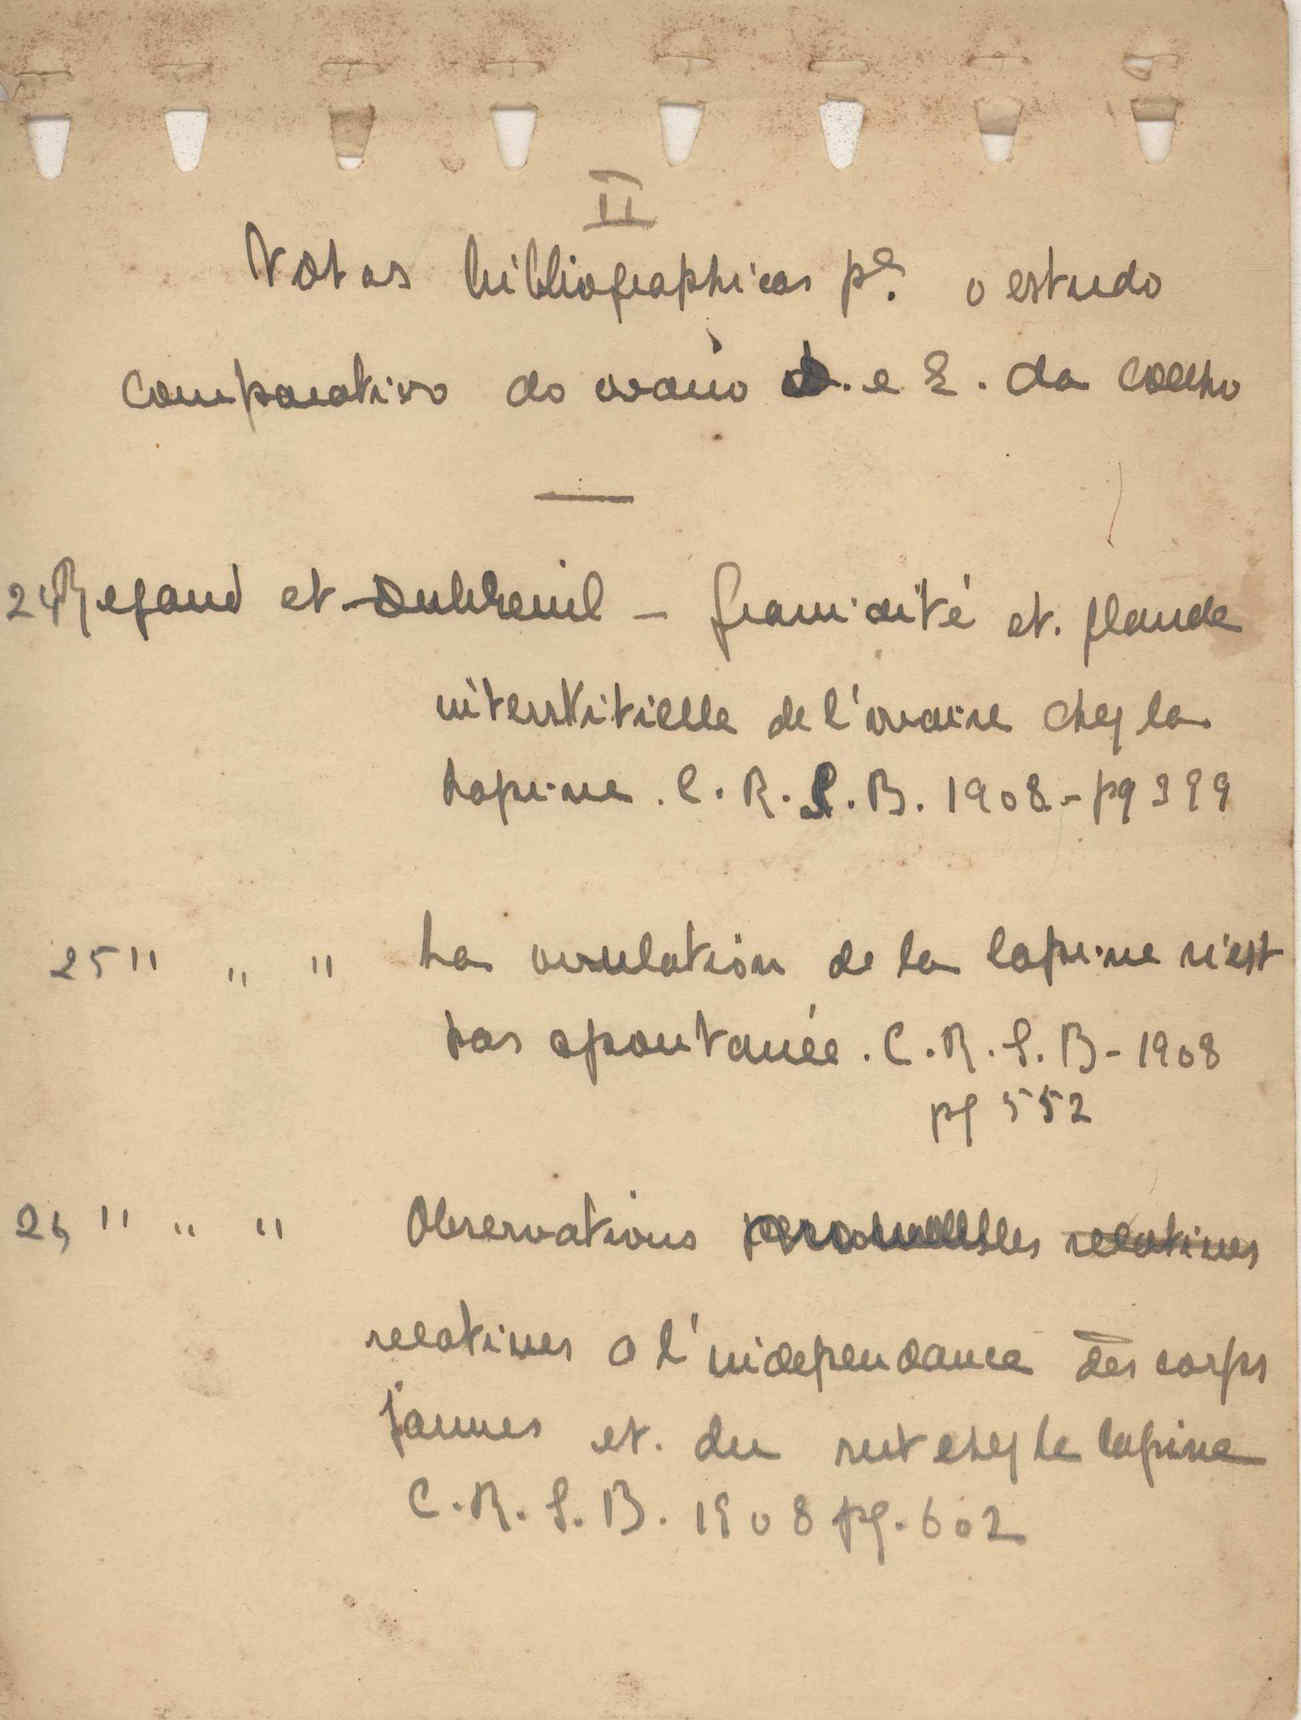 II
Notas bibliographicas pª. o estudo
comparativo do ovario D. e E. da coelha
24 Regaud et Dubreuil – Gravidité et glande
interstitielle de l'ovaire chez la
lapine. C. R. S. B. 1908 – pg 399
25 " " " La ovulation de la lapine n'est
pas spontanée. C. R. S. B – 1908
pg 552
26 " " " Observations nouvelles relatives
relatives a l'independance des corps
jaunes et du rut chez la lapine
C. R. S. B. 1908 pg. 602